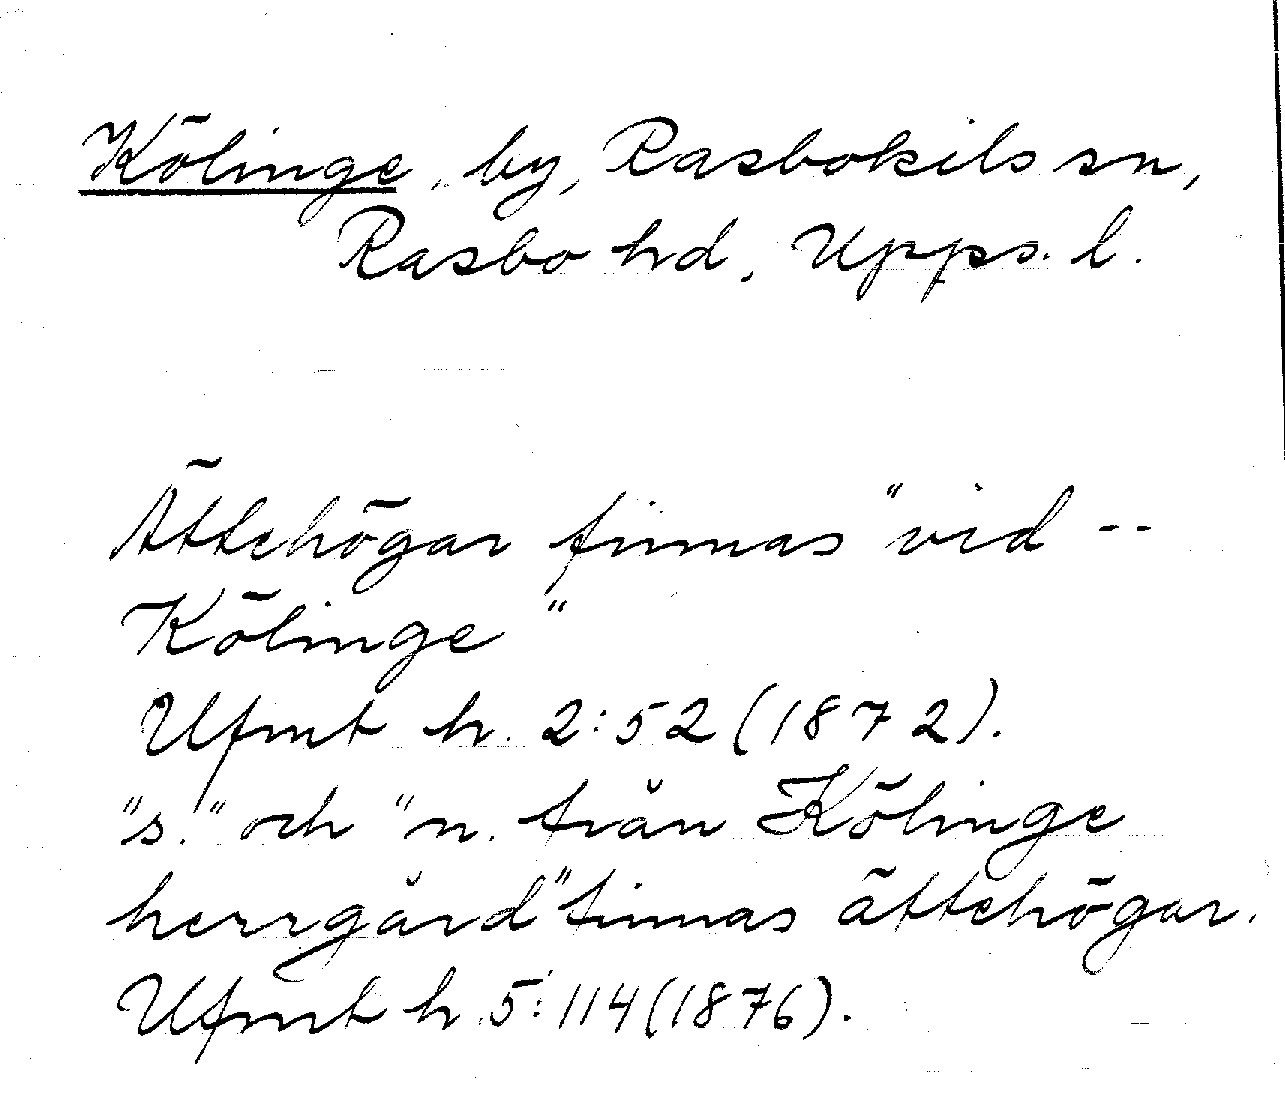 Kölinge, by, Rasbokils sn,
Rasbo hd, Upps. l.
Ättehögar finnas "vid --
Kölinge"
Ufmt h. 2:52 (1872).
"s." och "n. från Kölinge
herrgård" finnas ättehögar.
Ufmt h. 5:114 (1876).